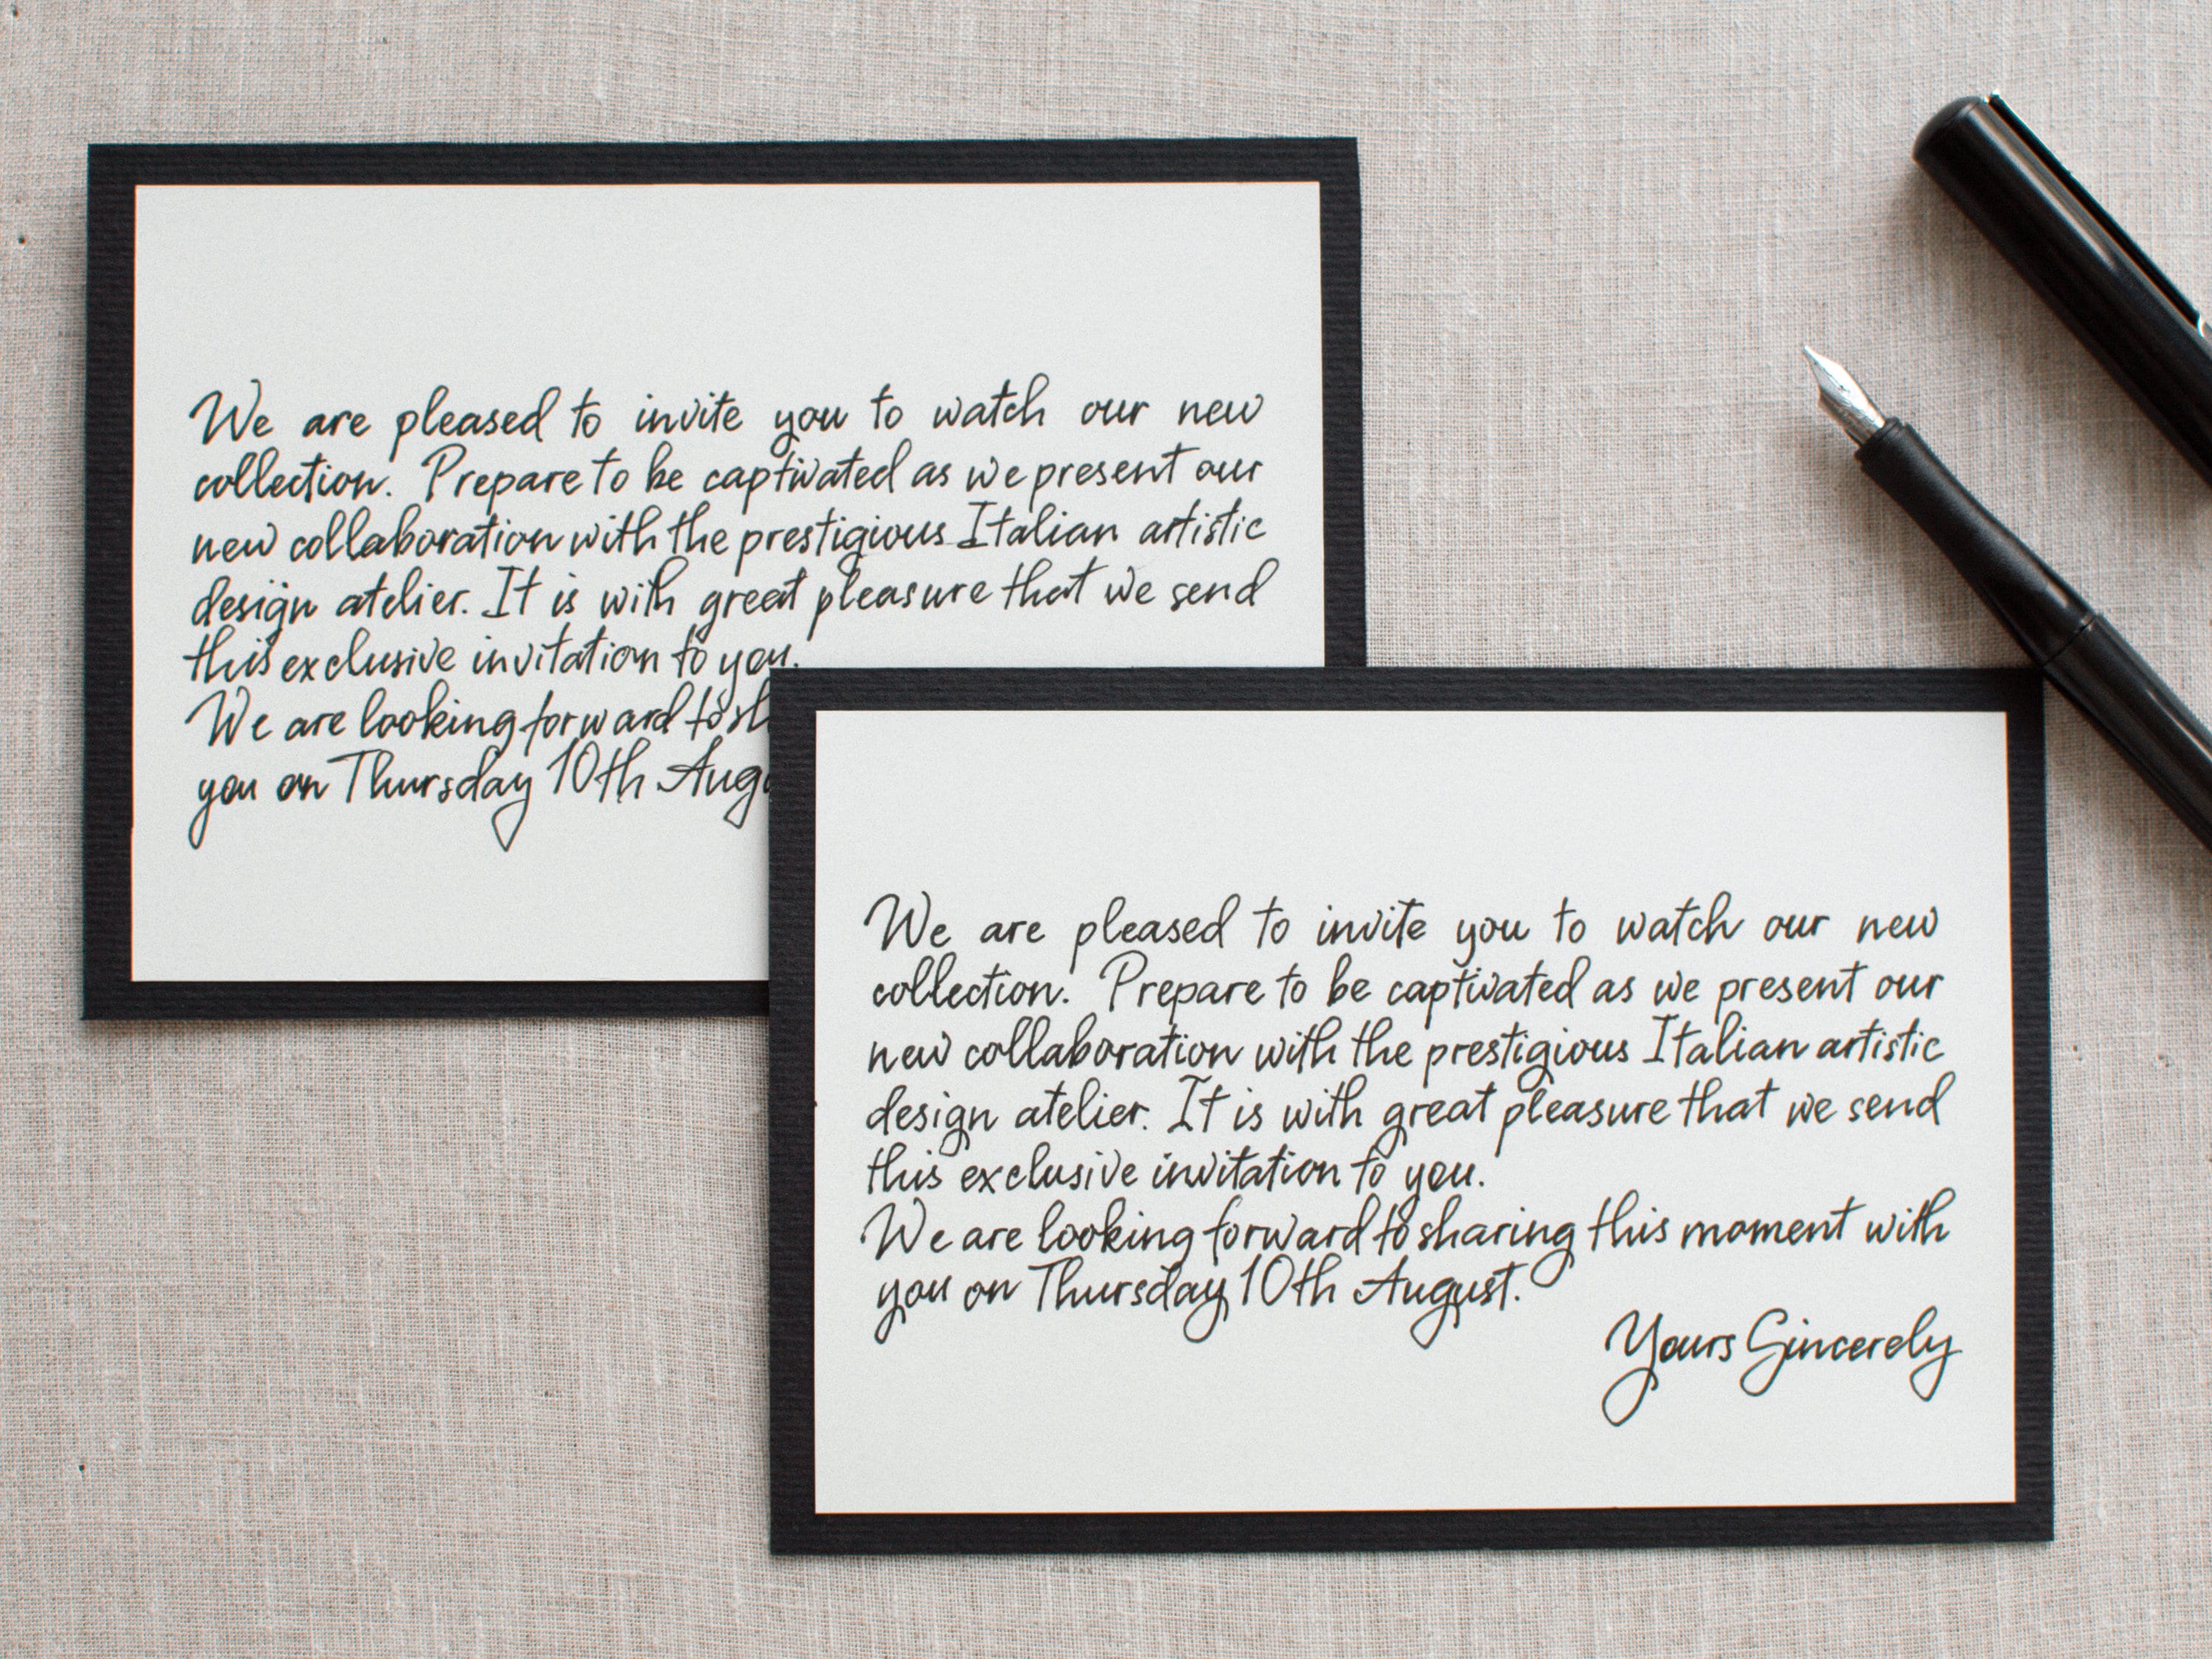 We are pleased to invite you to watch our new
collection. Prepare to be captivated as we present our
new collaboration with the prestigious Italian artistic
design atelier. It is with great pleasure that we send
this exclusive invitation to you.
We are looking forward to
you on Thursday 10th
We are pleased to invite you to watch our new
collection. Prepare to be captivated as we present our
new collaboration with the prestigious Italian artistic
design atelier. It is with great pleasure that we send
this exclusive invitation to you.
We are looking forward to sharing this moment with
you on Thursday 10th August.
Yours Sincerely